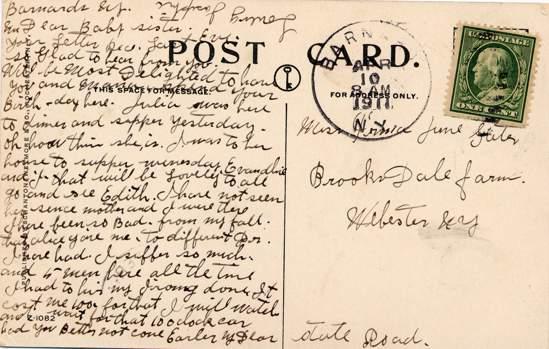 Barnards N.Y.
My Dear Baby sister.
your Letter Rec. Last Eve.
so Glad to hear from you.
Will be Most Delighted to have
you and
Birth-day here. Julia was here
to Dinner and supper yesterday.
oh how thin she is. I was to her
house to supper wensday Evand
and if that will be Lovely to all
go and see Edith. I have not seen
her sence mother and I were there
I have been so Bad. from my fall.
to different Dr.
I have had. I suffer so much.
and 5-men here all the time
I had to his my Ironing done. It
cost me too for that I will watch
and wait for that 10 oclock car
had you Better not come Earler My Dear
POST CARD.
THIS SPACE FOR MESSAGE.
FOR ADDRESS ONLY.
Z-1082
BARNARD
APR
10
8 AM
1911
N.Y.
U.S. POSTAGE
ONE CENT
Miss June
Brooks Dale farm.
Webester N.Y.
State Road.